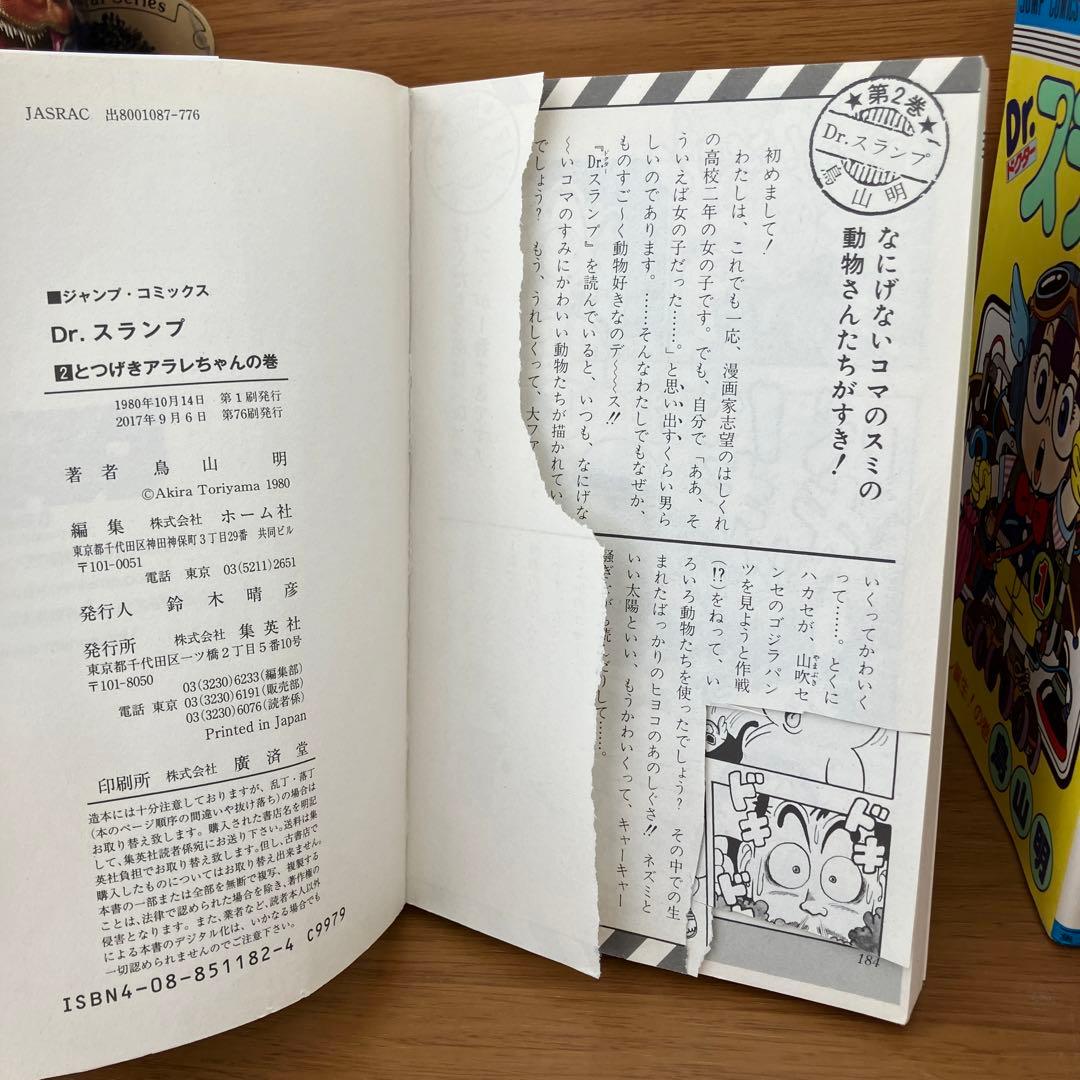 JASRAC 出8001087-776
■ジャンプ・コミックス
Dr.スランプ
2とつげきアラレちゃんの巻
1980年10月14日 第1刷発行
2017年9月6日 第76刷発行
著者 鳥山明
©Akira Toriyama 1980
編集 株式会社 ホーム社
東京都千代田区神田神保町3丁目29番 共同ビル
〒101-0051
電話 東京 03(5211)2651
発行人 鈴木晴彦
発行所 株式会社 集英社
東京都千代田区一ツ橋2丁目5番10号
〒101-8050
03(3230)6233(編集部)
電話 東京 03(3230)6191(販売部)
03(3230)6076(読者係)
Printed in Japan
印刷所 株式会社 廣済堂
造本には十分注意しておりますが、乱丁・落丁
(本のページ順序の間違いや抜け落ち)の場合は
お取り替え致します。購入された書店名を明記
して、集英社読者係宛にお送り下さい。送料は集
英社負担でお取り替え致します。但し、古書店で
購入したものについてはお取り替え出来ません。
本書の一部または全部を無断で複写、複製する
ことは、法律で認められた場合を除き、著作権の
侵害となります。また、業者など、読者本人以外
による本書のデジタル化は、いかなる場合でも
一切認められませんのでご注意下さい。
ISBN4-08-851182-4 C9979
★第2巻★
Dr.スランプ
鳥山明
なにげないコマのスミの
動物さんたちがすき!
初めまして!
わたしは、これでも一応、漫画家志望のはしくれ
の高校二年の女の子です。でも、自分で「ああ、そ
ういえば女の子だった……。」と思い出すくらい男ら
しいのであります。……そんなわたしでもなぜか、
ものすご〜く動物好きなのデ〜〜〜ス!!
『Dr.スランプ』を読んでいると、いつも、なにげな
ドクター
〜いコマのすみにかわいい動物たちが描かれてい
でしょう? もう、うれしくって、大ファ
いくってかわいく
って……。とくに
ハカセが、山吹セ
やまぶき
ンセのゴジラパン
ツを見ようと作戦
(!?)をねって、い
ろいろ動物たちを使ったでしょう? その中での生
まれたばっかりのヒヨコのあのしぐさ!! ネズミと
いい太陽といい、もうかわいくって、キャーキャー
ドキドキ
ドキドキ
184
JUMP COMICS
Dr.
ドクター
1
鳥山明
Series